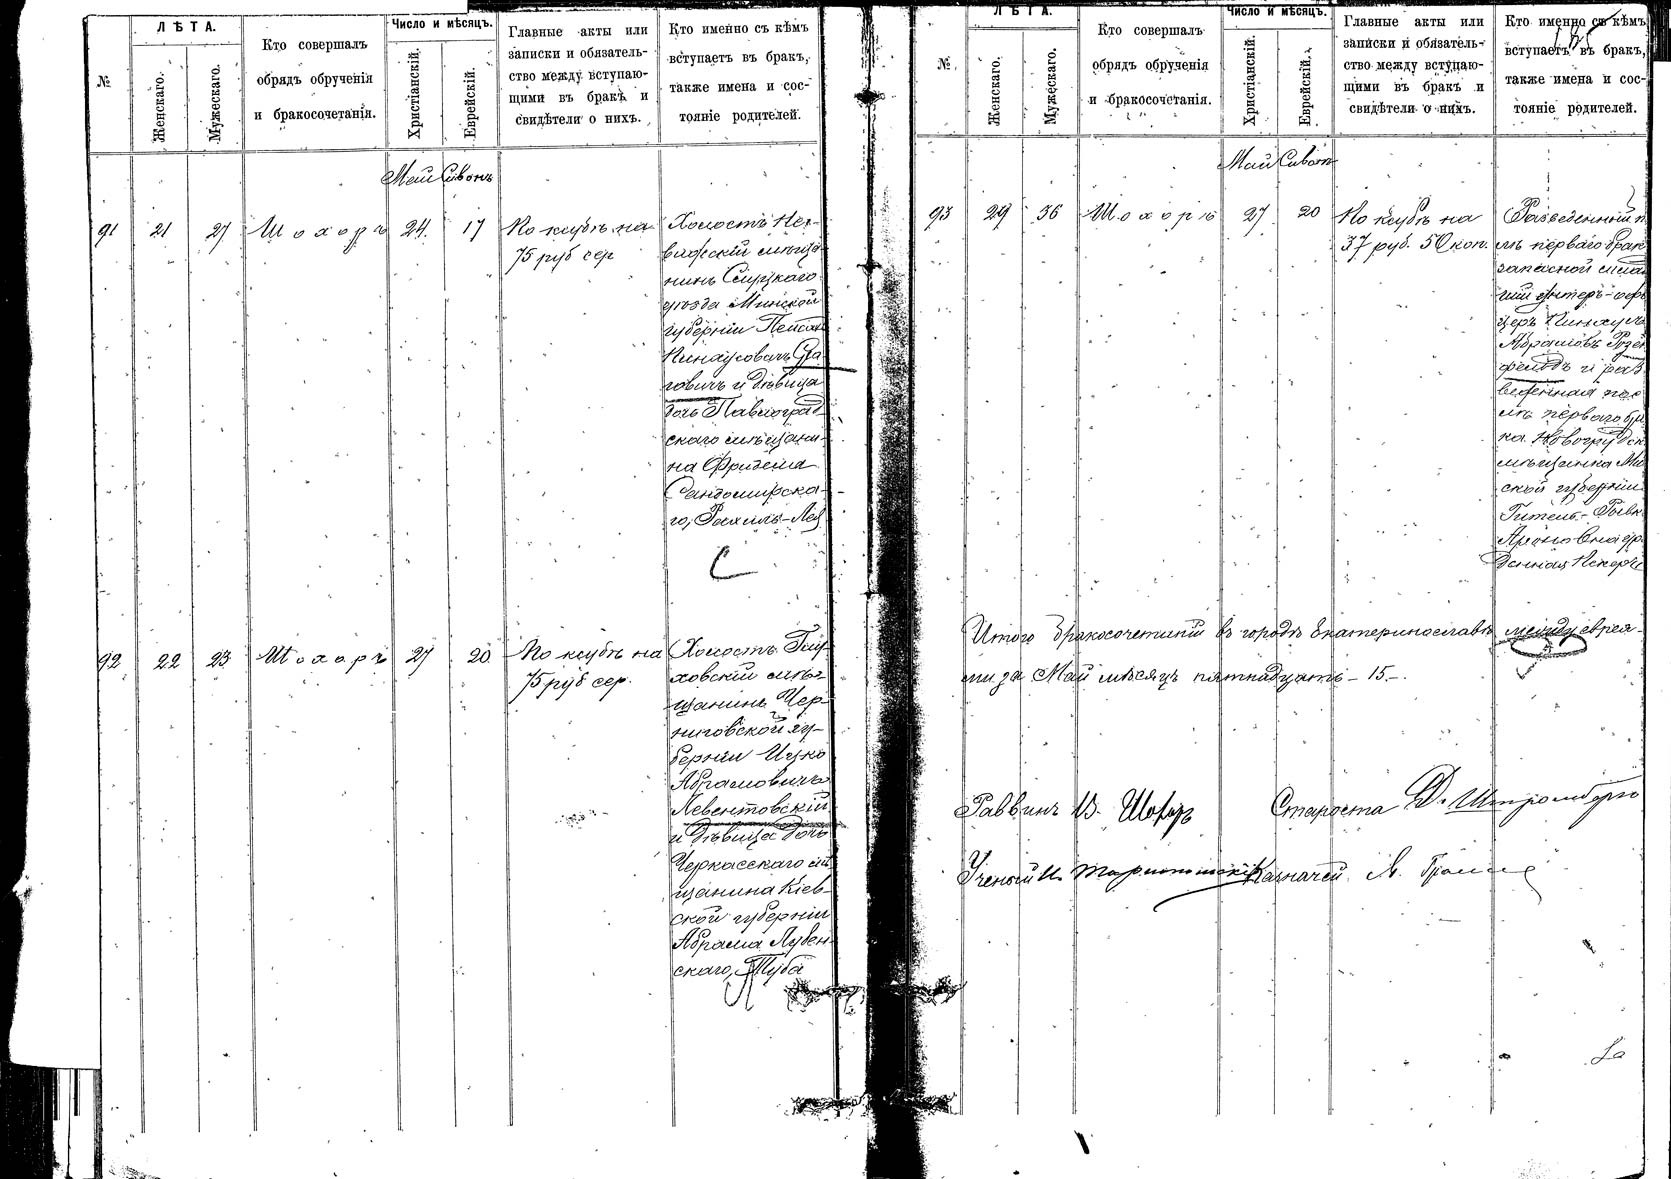 №
ЛѢТА.
Женскаго.
Мужескаго.
Кто совершалъ
обрядъ обрученія
и бракосочетанія.
Число и мѣсяцъ.
Христіанскій.
Еврейскій.
Главные акты или
записки и обязатель-
ство между вступаю-
щими въ бракъ и
свидѣтели о нихъ.
Кто именно съ кѣмъ
вступаетъ въ бракъ,
также имена и сос-
тояніе родителей.
Май Сивонъ
91 21 27 Шохоръ 24 17
По ктубѣ на
75 руб сер
Холостъ
мѣща-
нинъ Слуцкаго
уѣзда Минской
губерніи Пейсах
Пинхусовичъ
и дѣвица
дочь Павлоград
скаго мѣщани-
на Фридема
Сандомирска-
го, Рахиль-Лея
92 22 23 Шохоръ 27 20
По ктубѣ на
75 руб сер.
Холостъ Глу-
ховскій мѣ-
щанинъ Чер-
ниговской гу-
берніи Ицко
Абрамовичъ
Левентовскій
и дѣвица дочь
Черкасскаго мѣ
щанина Кіев-
ской губерніи
Абрама Лубен-
скаго, Туба
№
ЛѢТА.
Женскаго.
Мужескаго.
Кто совершалъ
обрядъ обрученія
и бракосочетанія.
Число и мѣсяцъ.
Христіанскій.
Еврейскій.
Главные акты или
записки и обязатель-
ство между вступаю-
щими въ бракъ и
свидѣтели о нихъ.
Кто именно съ кѣмъ
вступаетъ въ бракъ,
также имена и сос-
тояніе родителей.
Май Сивон
93 29 36 Шохоръ 27 20
По ктубѣ на
37 руб. 50 коп.
Разведенный п
лѣ перваго брак
запасной млад
шій унтеръ-офи
церъ Пинхусъ
Абрамовъ Розен
фельдъ и раз
веденная пос
лѣ перваго бра
ка Новогрудск
мѣщанка Ми
ской губерніи
Гитель-Рывк
Ароновна ур
денная
Итого бракосочетаній въ городѣ Екатеринославѣ между еврея-
ми за Май мѣсяцъ пятнадцать - 15.-
Раввинъ В. Шохоръ Староста Д. Штромбергъ
Ученый И. Казначей Л.